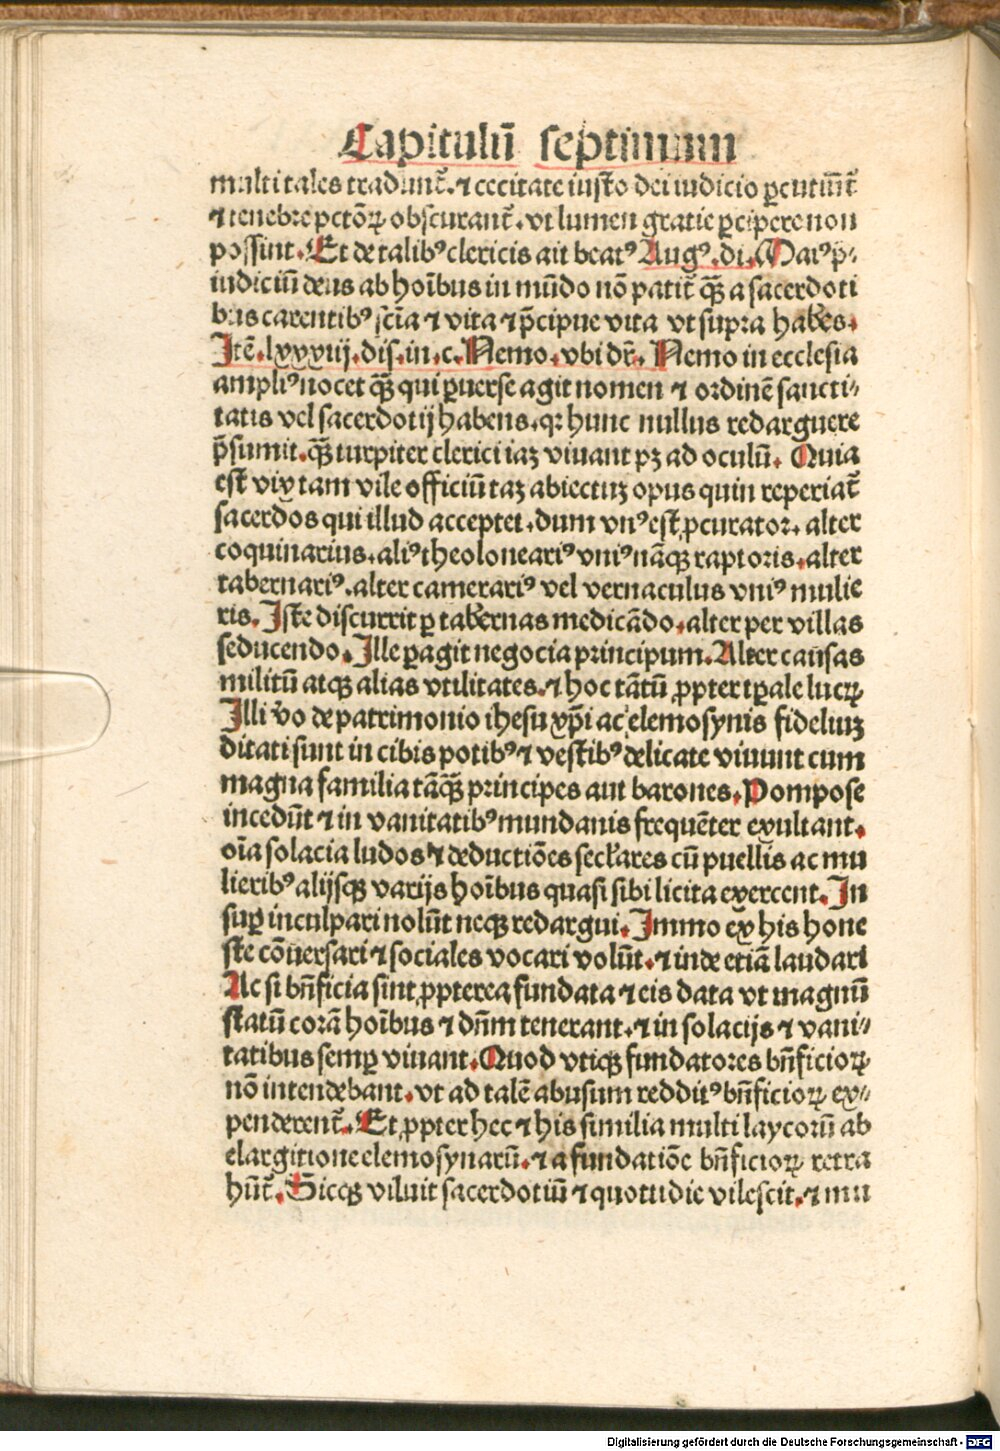 Capitulū septimum
multi tales tradunt᷑. ⁊ cecitate iusto dei iudicio ꝑcutiūt᷑
⁊ tenebre pctōꝝ obscurant᷑. vt lumen gratie ꝑcipere non
possint. Et de talibꝰ clericis ait beatꝰ Augꝰ. di. Maiꝰ p̄-
iudiciū deus ab hoībus in mūdo nō patit᷑ qȝ̄ a sacerdoti
bus carentibꝰ scīa ⁊ vita ⁊ p̄cipue vita vt supra habes.
Itē. lxxxiij. dis. in. c. Nemo. vbi dr̄. Nemo in ecclesia
ampliꝰ nocet qȝ̄ qui ꝑuerse agit nomen ⁊ ordinē sancti-
tatis vel sacerdotij habens. qꝛ hunc nullus redarguere
p̄sumit. qȝ̄ turpiter clerici iaȝ viuant pȝ ad oculū. Quia
est vix tam vile officiū taȝ abiectuȝ opus quin reperiat᷑
sacerdos qui illud acceptet. dum vnꝰ est ꝓcurator. alter
coquinarius. aliꝰ theoloneariꝰ vniꝰ nāqȝ raptoris. alter
tabernariꝰ. alter camerariꝰ vel vernaculus vniꝰ mulie
ris. Iste discurrit ꝑ tabernas medicādo. alter per villas
seducendo. Ille ꝑagit negocia principum. Alter causas
militū atqȝ alias vtilitates. ⁊ hoc tātū ꝓpter tꝑale lucꝝ
Illi ѷo de patrimonio ihesu xp̄i ac elemosynis fideliuȝ
ditati sunt in cibis potibꝰ ⁊ vestibꝰ delicate viuunt cum
magna familia tāqȝ̄ principes aut barones. Pompose
incedūt ⁊ in vanitatibꝰ mundanis frequēter exultant.
oīa solacia ludos ⁊ deductiōes secl̓ares cū puellis ac mu
lieribꝰ alijsqȝ varijs hoībus quasi sibi licita exercent. In
suꝑ inculpari nolūt neqȝ redargui. Immo ex his hone
ste cōuersari ⁊ sociales vocari volūt. ⁊ inde etiā laudari
Ac si bn̄ficia sint ꝓpterea fundata ⁊ eis data vt magnū
statū corā hoībus ⁊ dn̄m tenerant. ⁊ in solacijs ⁊ vani-
tatibus semꝑ viuant. Quod vtiqȝ fundatores bn̄ficioꝝ
nō intendebant. vt ad talē abusum redditꝰ bn̄ficioꝝ ex-
penderent᷑. Et ꝓpter hec ⁊ his similia multi laycorū ab
elargitione elemosynarū. ⁊ a fundatiōe bn̄ficioꝝ retra
hūt᷑. Sicqȝ viluit sacerdotiū ⁊ quotidie vilescit. ⁊ mu
Digitalisierung gefördert durch die Deutsche Forschungsgemeinschaft - DFG